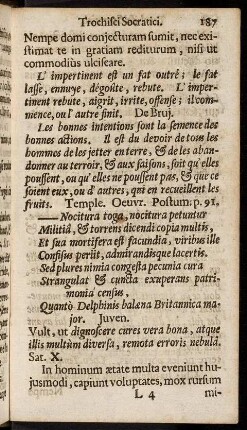 Trochisci Socratici. 187
Nempe domi conjecturam sumit, nec exi-
stimat te in gratiam rediturum, nisi ut
commodiùs ulciscare.
L' impertinent est un fat outré; le fat
lasse, ennuye, dégoûte, rebute. L' imper-
tinent rebute, aigrit, irrite, offense; il com-
mence, ou l' autre finit. De Bruj.
Les bonnes intentions sont la semence des
bonnes actions. Il est du devoir de tous les
hommes de les jetter en terre, & de les aban-
donner au terroir, & aux saisons, soit qu' elles
poussent, ou qu' elles ne poussent pas, & que ce
soient eux, ou d' autres, qui en recueillent les
fruits. Temple. Oeuvr. Postum. p. 91.
— Nocitura toga, nocitura petuntur
Militiâ, & torrens dicendi copia multis,
Et sua mortifera est facundia, viribus ille
Confisus periit, admirandisque lacertis.
Sed plures nimia congesta pecunia cura
Strangulat & cuncta exuperans patri-
monia census,
Quantò Delphinis balæna Britannica ma-
jor. Juven.
Vult, ut dignoscere cures vera bona, atque
illis multùm diversa, remota erroris nebulâ.
Sat. X.
In hominum ætate multa eveniunt hu-
jusmodi, capiunt voluptates, mox rursum
L 4 mi-